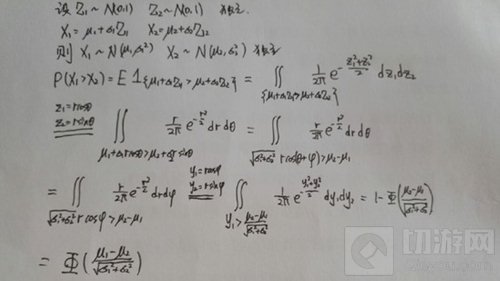 设 Z₁ ~ N(0,1) Z₂ ~ N(0,1) 独立
X₁ = μ₁+σ₁Z₁, X₂ = μ₂+σ₂Z₂
则 X₁ ~ N(μ₁,σ₁²) X₂ ~ N(μ₂,σ₂²) 独立
P(X₁>X₂) = E 1{μ₁+σ₁Z₁ > μ₂+σ₂Z₂} = ∬_{{μ₁+σ₁Z₁>μ₂+σ₂Z₂}} 1/2π e^{-(z₁²+z₂²)/2} dz₁dz₂
z₁=rcosθ z₂=rsinθ ∬_{μ₁+σ₁rcosθ>μ₂+σ₂rsinθ} r/2π e^{-r²/2} dr dθ = ∬_{√(σ₁²+σ₂²) r cos(θ+φ)>μ₂-μ₁} r/2π e^{-r²/2} dr dθ
= ∬_{√(σ₁²+σ₂²) r cosφ>μ₂-μ₁} r/2π e^{-r²/2} dr dφ y₁=rcosφ y₂=rsinφ ∬_{y₁>(μ₂-μ₁)/√(σ₁²+σ₂²)} 1/2π e^{-(y₁²+y₂²)/2} dy₁dy₂ = 1-Φ((μ₂-μ₁)/√(σ₁²+σ₂²))
= Φ((μ₁-μ₂)/√(σ₁²+σ₂²))
切游网